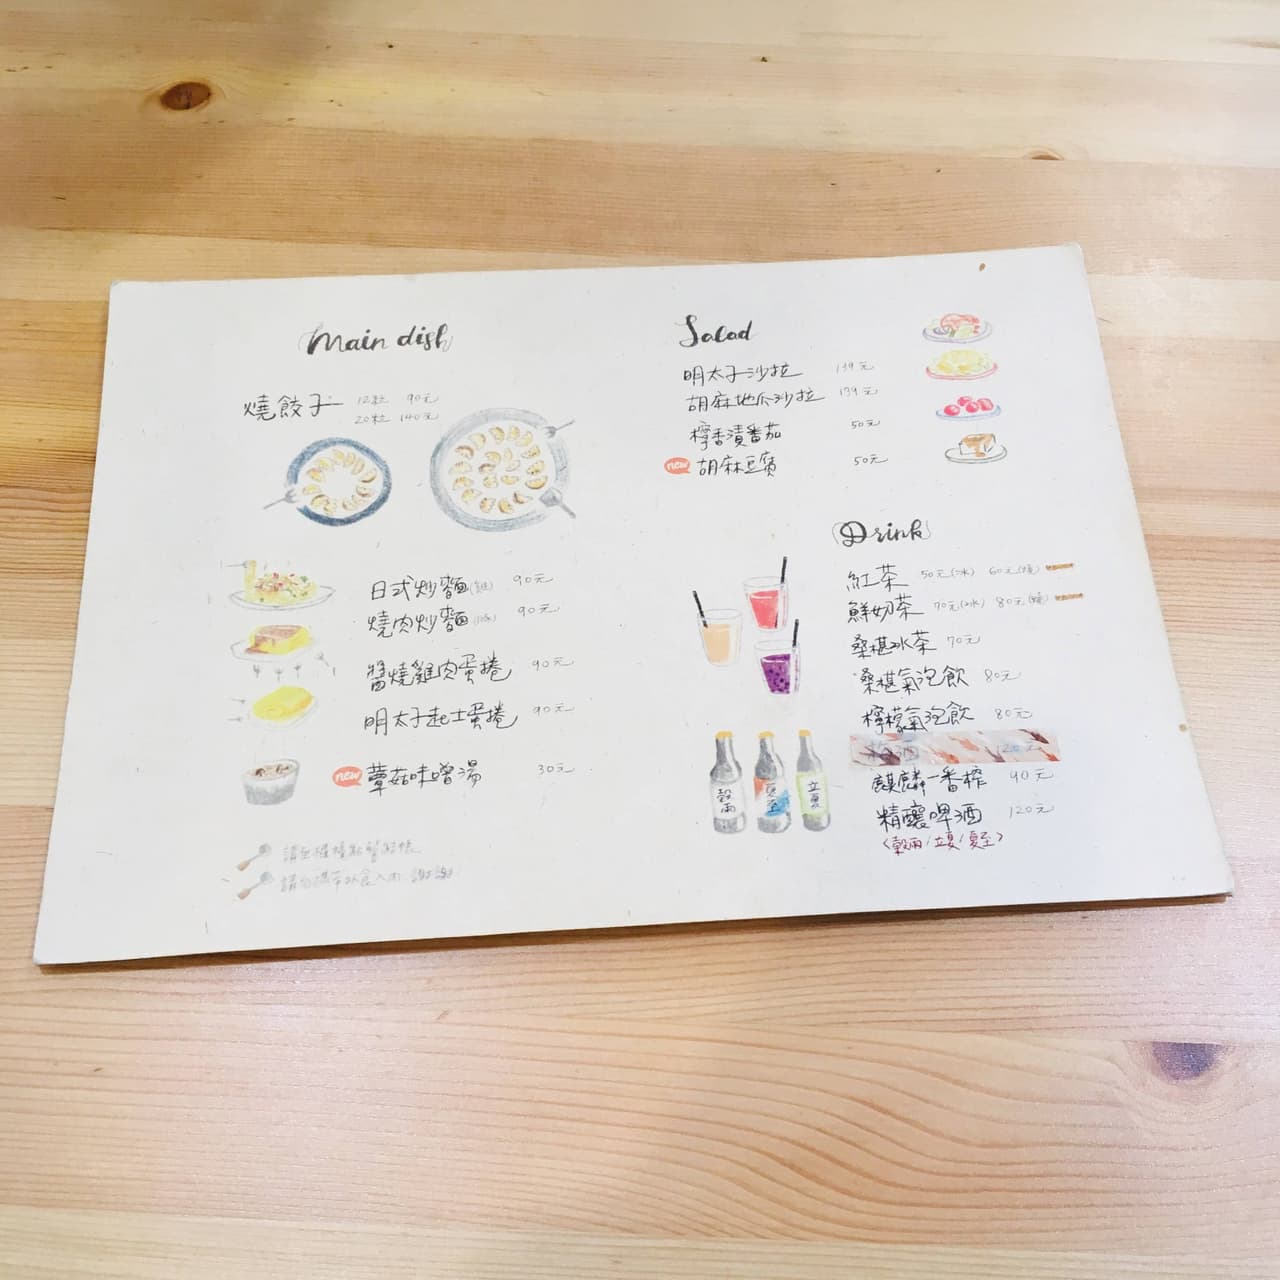 Main dish
燒餃子 12粒 90元
20粒 140元
日式炒麵 90元
燒肉炒麵 90元
醬燒雞肉蛋捲 90元
明太子起士蛋捲 90元
new 蕈菇味噌湯 30元
請至櫃檯點餐結帳
請勿攜帶外食入內 謝謝
Salad
明太子沙拉 139元
胡麻地瓜沙拉 139元
檸香漬番茄 50元
new 胡麻豆腐 50元
Drink
紅茶 50元(冰) 60元(燒)
鮮奶茶 70元(冰) 80元(燒)
桑椹冰茶 70元
桑椹氣泡飲 80元
檸檬氣泡飲 80元
梅酒 120元
麒麟一番榨 90元
精釀啤酒 120元
〈穀雨/立夏/夏至〉
穀雨
夏至
立夏